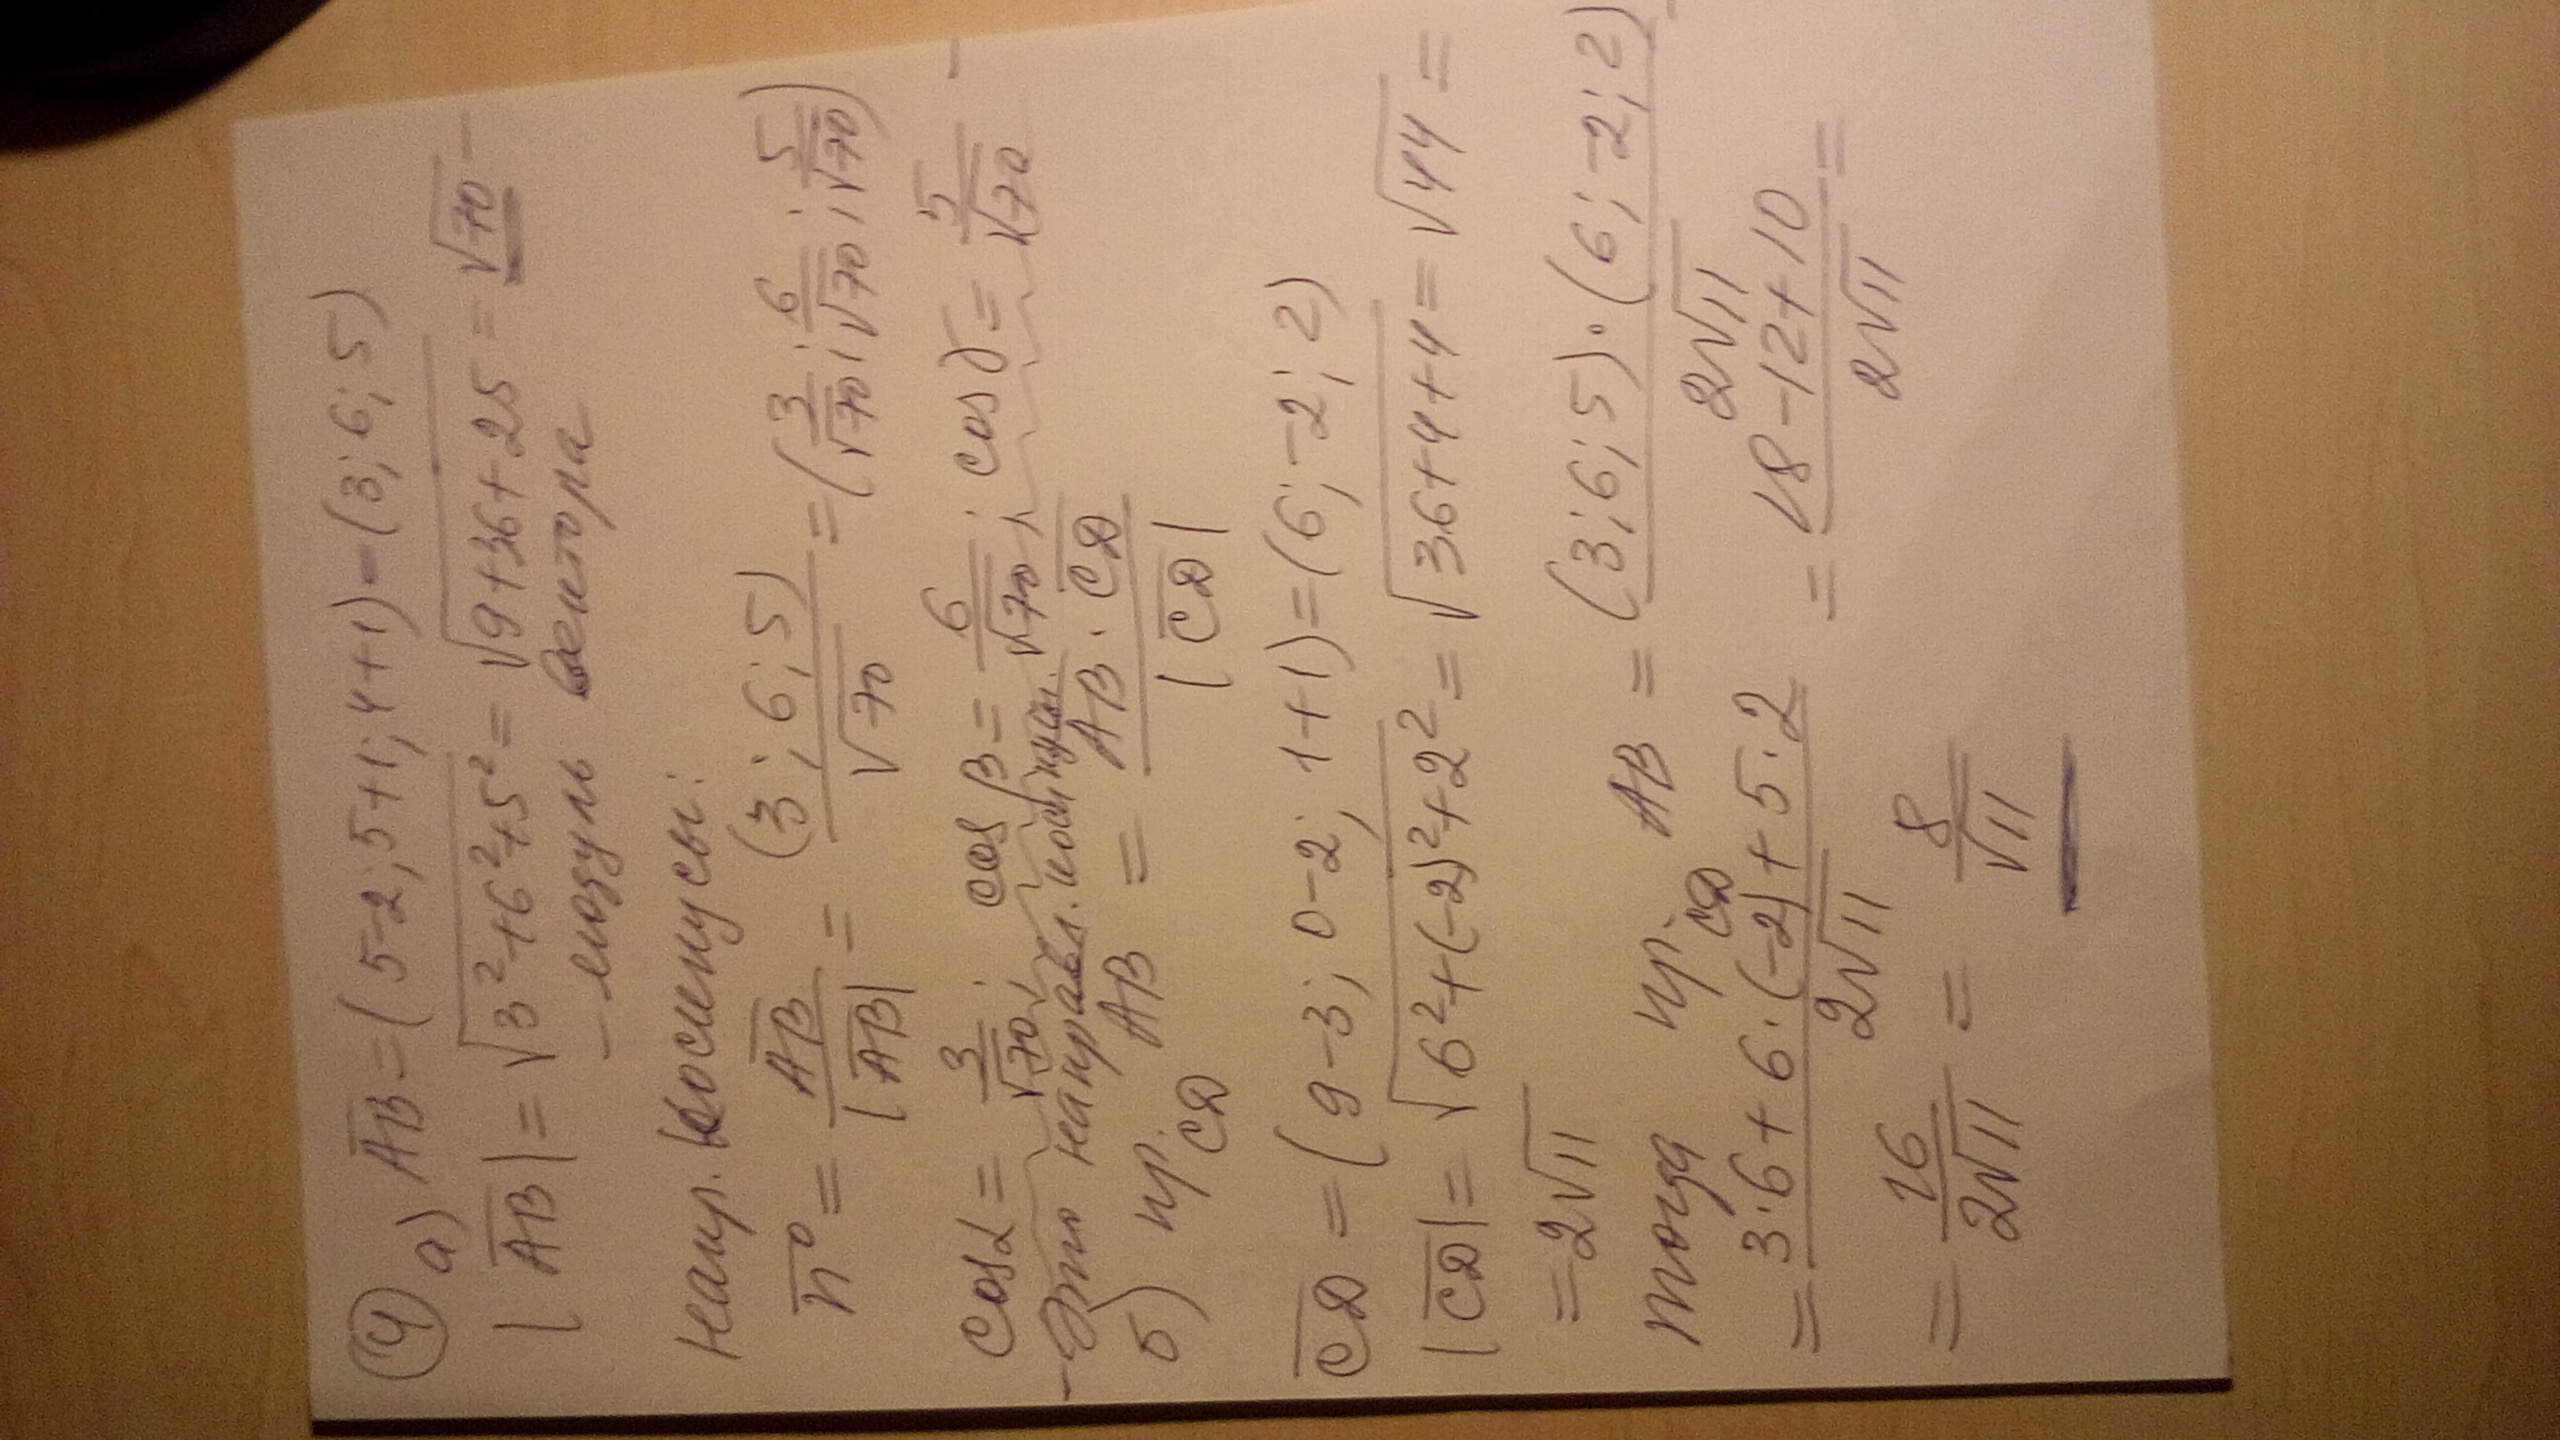 ④ а) A̅B̅ = (5-2; 5+1; 4+1) - (3; 6; 5)
|A̅B̅| = √(3²+6²+5²) = √(9+36+25) = √70 -
- модуль вектора
напр. косинусы:
n̅⁰ = A̅B̅/|A̅B̅| = (3; 6; 5)/√70 = (3/√70; 6/√70; 5/√70)
cosα = 3/√70; cosβ = 6/√70; cosγ = 5/√70 -
- Это направл. косинусы.
б) пр. C̅D̅ AB = A̅B̅ · C̅D̅/|C̅D̅|
C̅D̅ = (9-3; 0-2; 1+1) = (6; -2; 2)
|C̅D̅| = √(6²+(-2)²+2²) = √(36+4+4) = √44 =
= 2√11
тогда пр. C̅D̅ AB = (3; 6; 5)·(6; -2; 2)/2√11 =
= 3·6+6·(-2)+5·2/2√11 = 18-12+10/2√11 =
= 16/2√11 = 8/√11